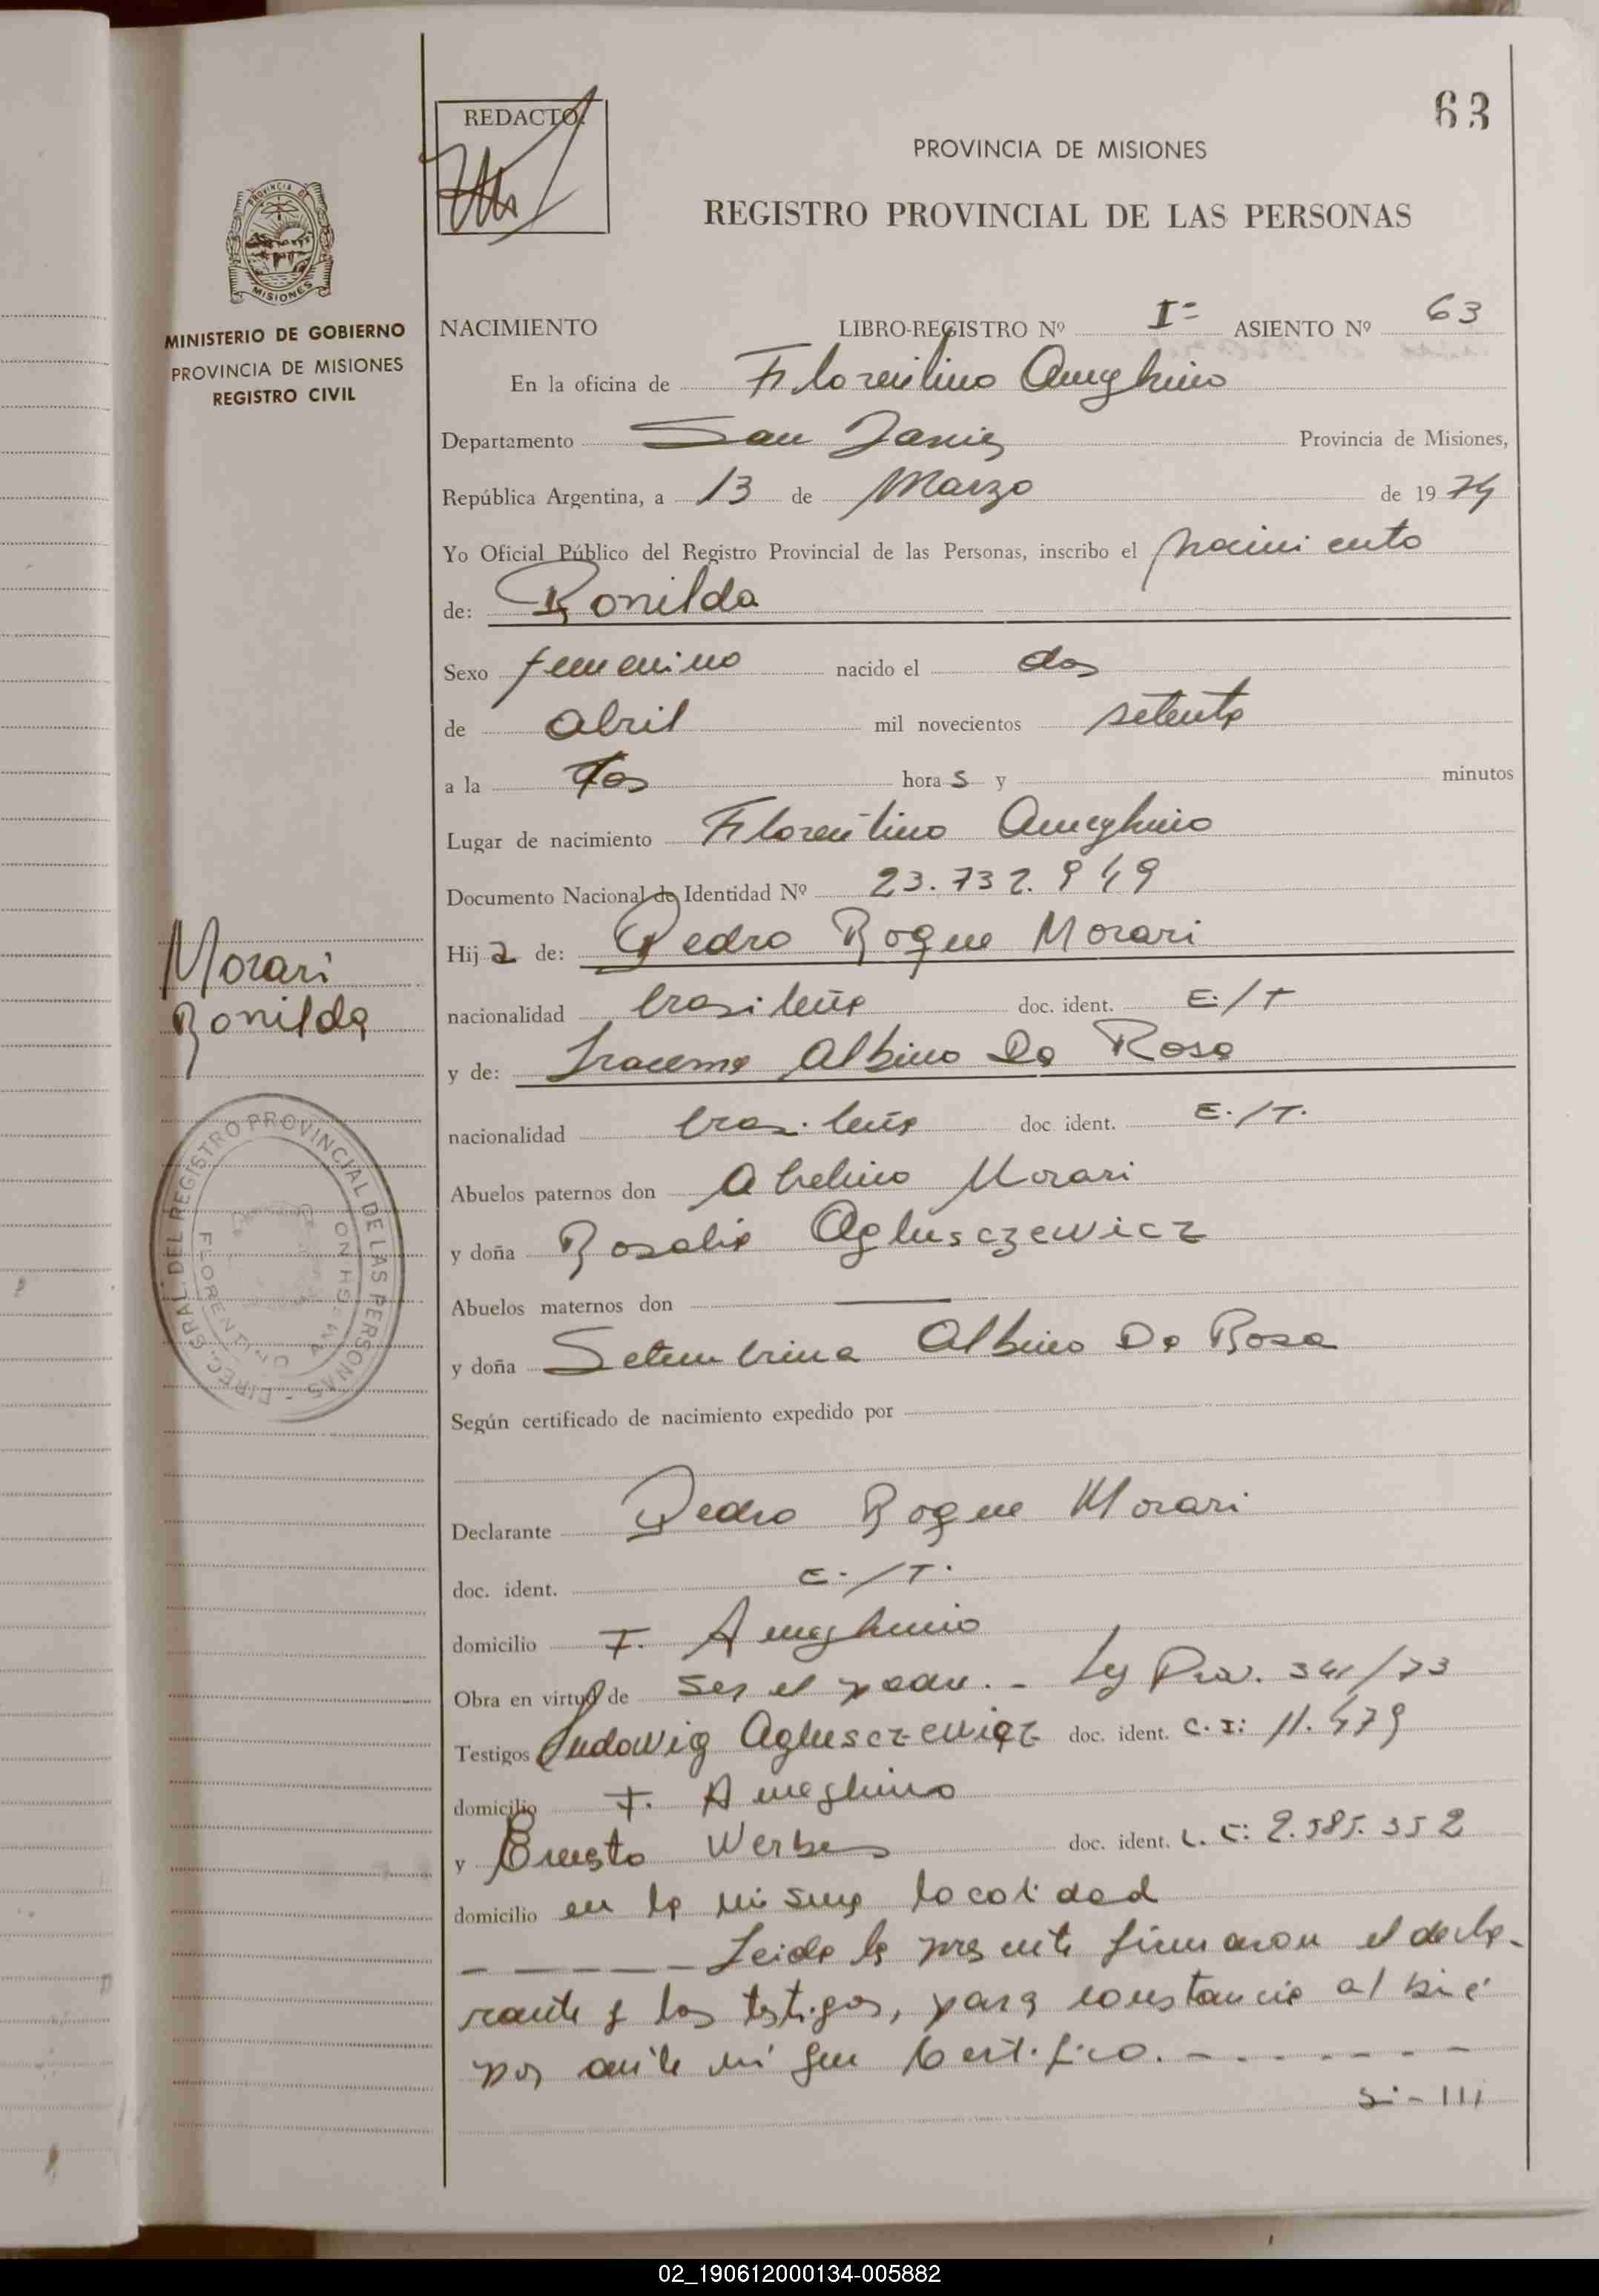 63
REDACTO:
PROVINCIA DE MISIONES
REGISTRO PROVINCIAL DE LAS PERSONAS
MINISTERIO DE GOBIERNO
PROVINCIA DE MISIONES
REGISTRO CIVIL
NACIMIENTO LIBRO-REGISTRO Nº I= ASIENTO Nº 63
En la oficina de Florentino Ameghino
Departamento San Javier Provincia de Misiones,
República Argentina, a 13 de Marzo de 1974
Yo Oficial Público del Registro Provincial de las Personas, inscribo el nacimiento
de: Ronilda
Sexo femenino nacido el dos
de abril mil novecientos setenta
a la dos hora s y minutos
Lugar de nacimiento Florentino Ameghino
Documento Nacional de Identidad Nº 23.732.949
Hij a de: Pedro Roque Morari
Morari
Ronilda
nacionalidad brasileña doc. ident. E./T
y de: Iracema Albino Da Rosa
nacionalidad brasileña doc. ident. E./T.
Abuelos paternos don Abelino Morari
y doña Rosalia Aglusczewicz
Abuelos maternos don
y doña Setembrina Albino Da Rosa
DIREC. GRAL. DEL REGISTRO PROVINCIAL DE LAS PERSONAS
FLORENTINO AMEGHINO
Según certificado de nacimiento expedido por
Declarante Pedro Roque Morari
doc. ident. E./T.
domicilio F. Ameghino
Obra en virtud de ser el padre.- Ley Prov. 341/73
Testigos Ludowig Agluesczewicz doc. ident. C.I: 11.479
domicilio F. Ameghino
y Ernesto Werbes doc. ident. L.E: 2.585.352
domicilio en la misma localidad
Leida la presente firmaron el decla-
rante y los testigos, para constancia al pié
por ante mi que Certifico.
02_190612000134-005882